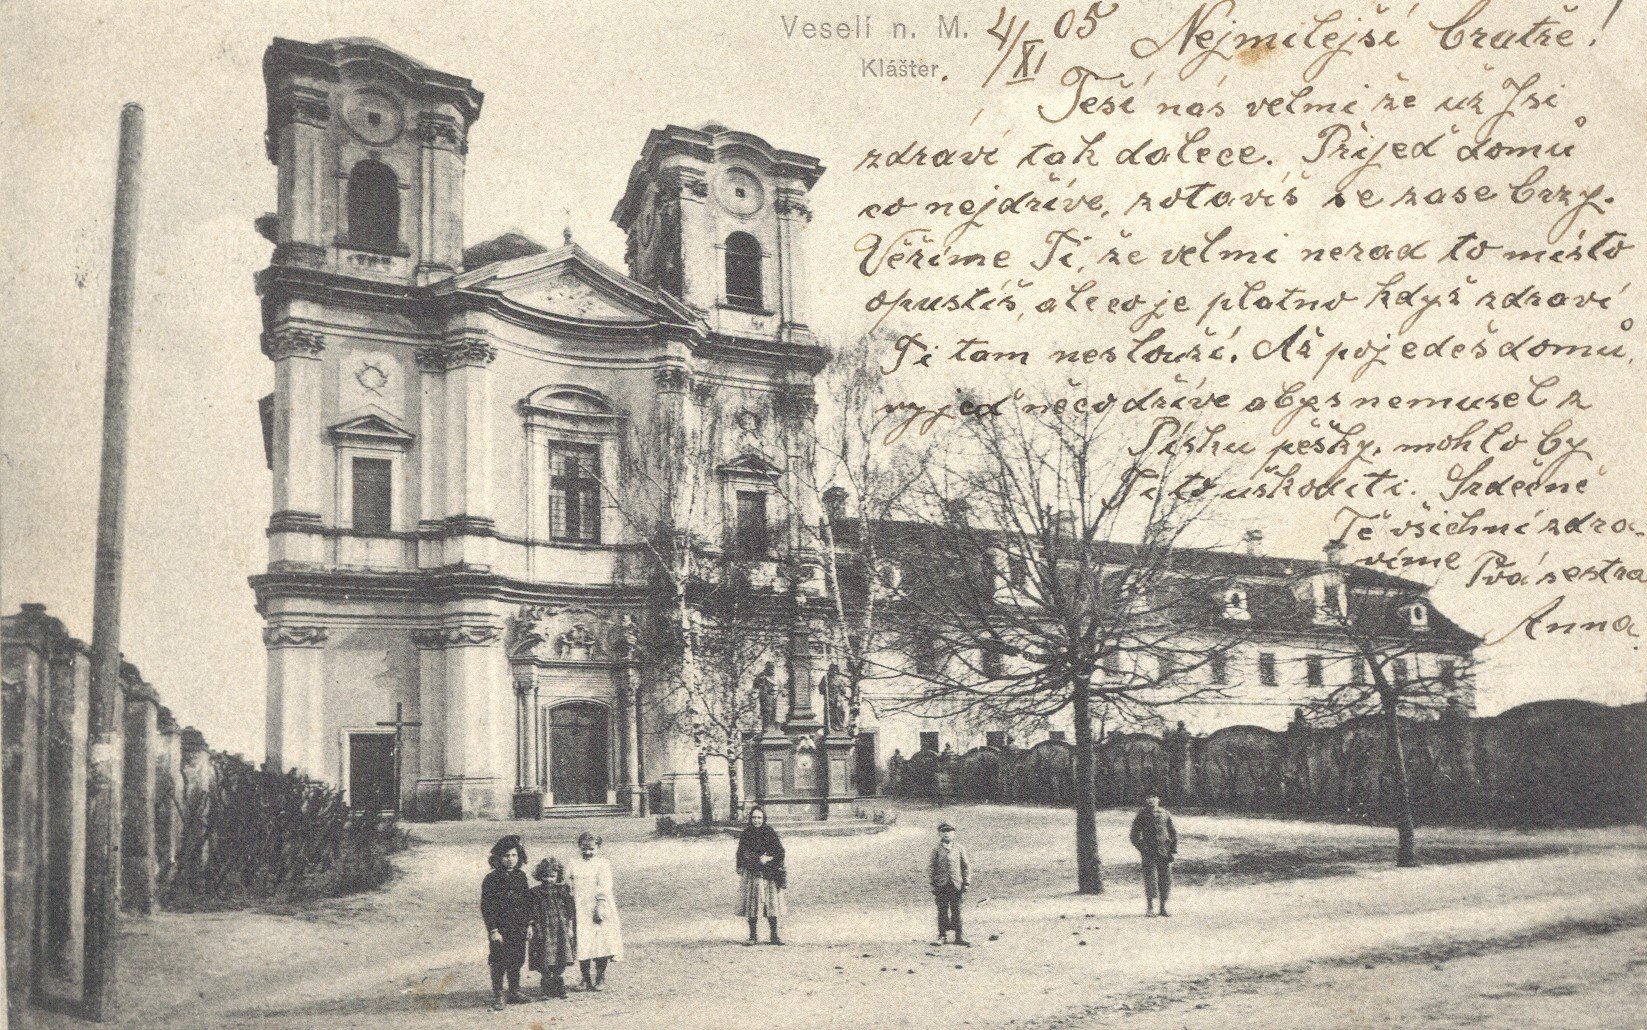 Veselí n. M.
Klášter.
4/XI 05
Nejmilejší bratře!
Těší nás velmi že už Jsi
zdráv tak dalece. Přijeď domů
co nejdříve, zotavíš se zase brzy.
Věříme Ti, že velmi nerad to místo
opustíš, ale co je platno když zdraví
Ti tam neslouží. Až pojedeš domů,
vyjeď něco dříve abys nemusel z
Písku pěšky, mohlo by
Ti to uškoditi. Srdečně
Tě všichni zdra-
víme Tvá sestra
Anna.